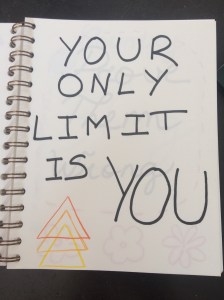 YOUR
ONLY
LIMIT
IS YOU